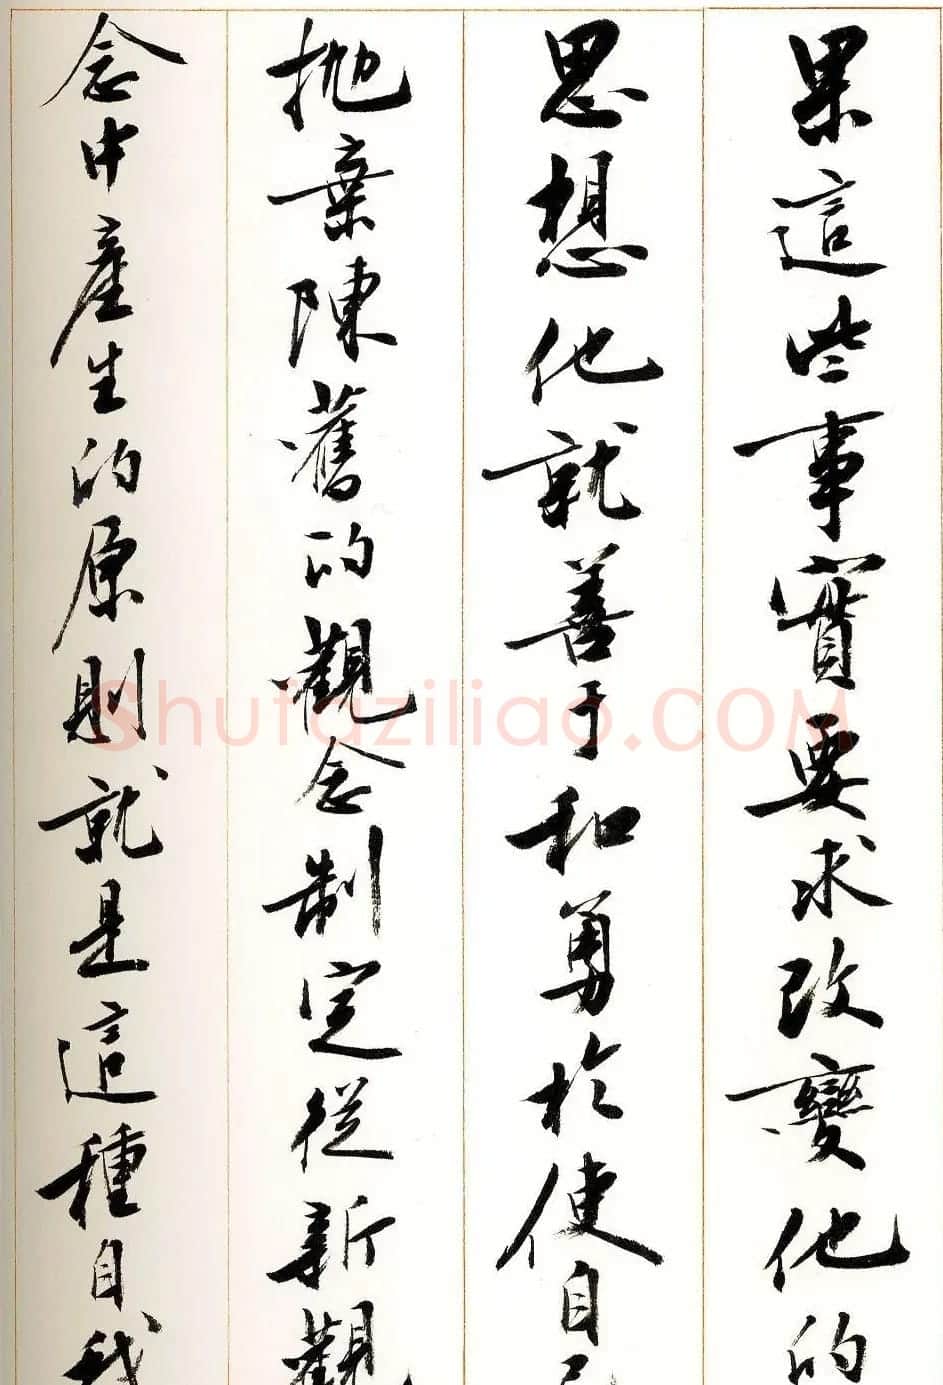 果這些事實要求改變他的
思想他就善于和勇於使自己
抛棄陳舊的觀念制定從新觀
念中產生的原則就是這種自我
Shufaziliao.COM